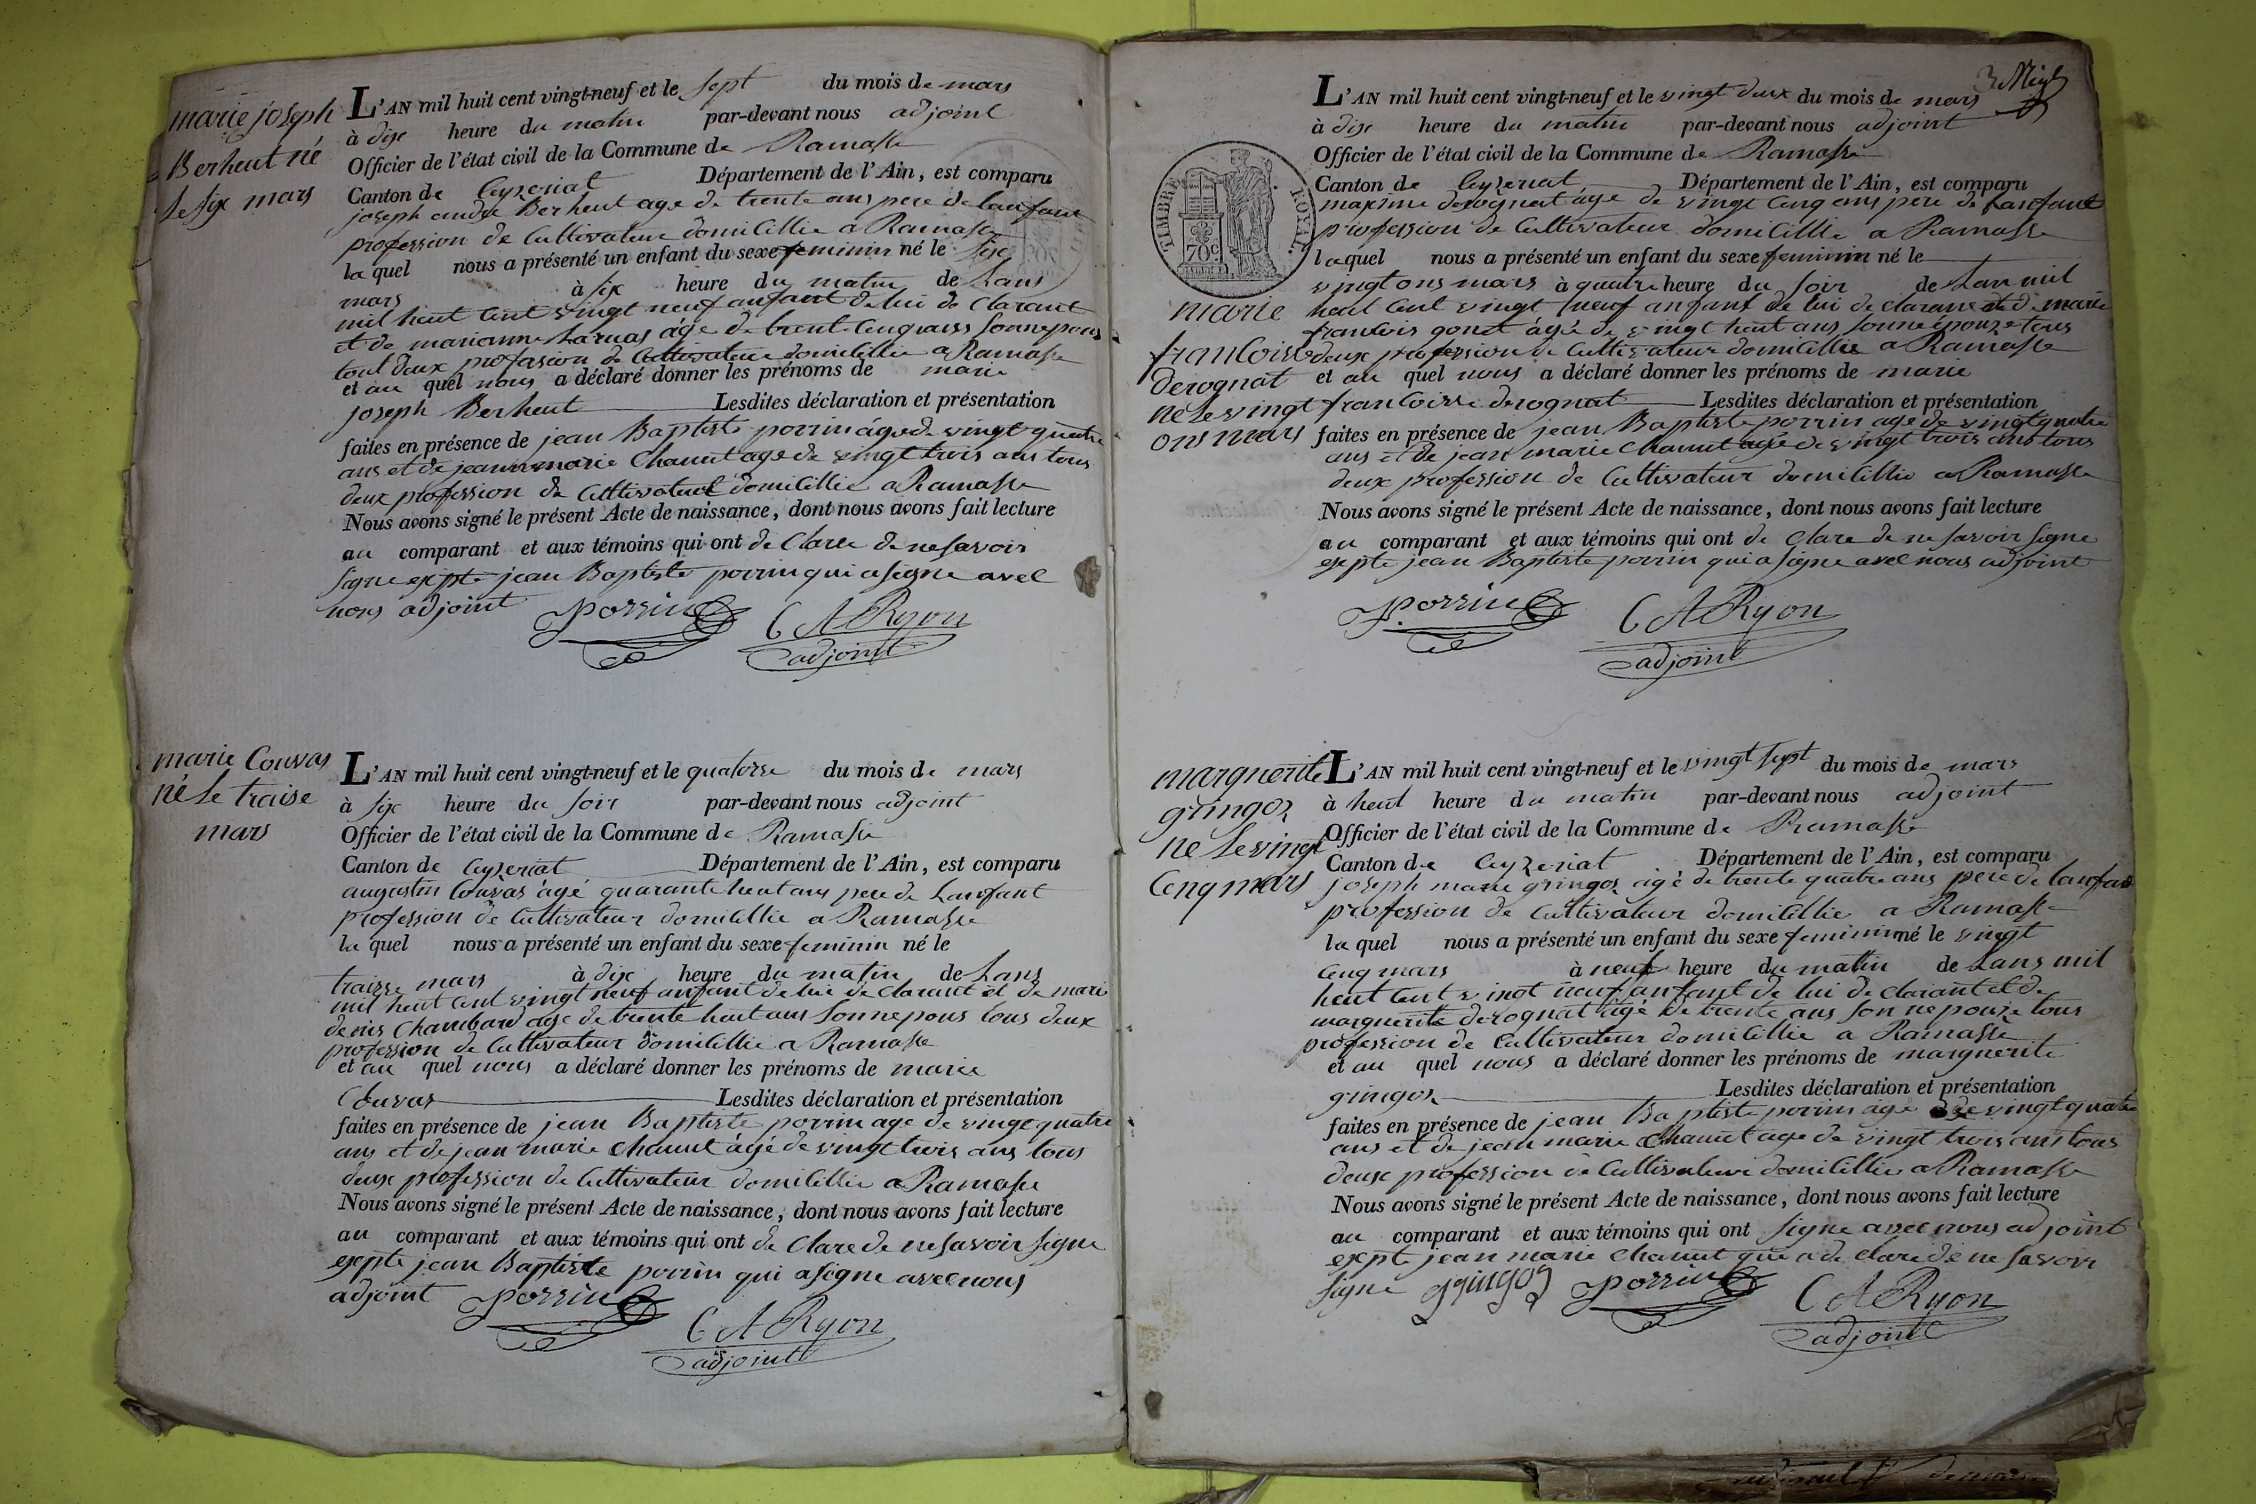 marie joseph
Berheut né
le six mars
L'AN mil huit cent vingt-neuf et le sept du mois de mars
à dix heure du matin par-devant nous adjoint
Officier de l'état civil de la Commune de Ramasse
Canton de Ceyzeriat Département de l'Ain, est comparu
joseph andré Berheut age de trente ans pere de lanfant
profession de Cultivateur domicillie a Ramasse
la quel nous a présenté un enfant du sexe feminin né le six
mars à six heure du matin de Lans
mil heut cent vingt neuf anfant de lui de Clarant
et de marianne Larnas áge de trente cenq ans sonnepous
tout deux profession de Cultivateur domicillie a Ramasse
et au quel nous a déclaré donner les prénoms de marie
joseph Berheut Lesdites déclaration et présentation
faites en présence de jean Baptiste perrin áge de vingt quatre
ans et de jean marie Chanut age de vingt trois ans tous
deux profession de Cultivateur domicillie a Ramasse
Nous avons signé le présent Acte de naissance, dont nous avons fait lecture
au comparant et aux témoins qui ont de Clare de ne savoir
signe exepte jean Baptiste perrin qui a signe avec
nous adjoint Perrin C A Ryon
adjoint
marie Couvas
né le traise
mars
L'AN mil huit cent vingt-neuf et le quatorse du mois de mars
à six heure du soir par-devant nous adjoint
Officier de l'état civil de la Commune de Ramasse
Canton de Ceyzeriat Département de l'Ain, est comparu
augustin Couvas ágé quarante heut ans pere de Lanfant
profession de Cultivateur domicillie a Ramasse
la quel nous a présenté un enfant du sexe feminin né le
traise mars à dix heure du matin de Lans
mil heut cent vingt neuf anfant de lui de clarant et de marie
denis Chambard age de trente heut ans sonnepous tous deux
profession de Cultivateur domicillie a Ramasse
et au quel nous a déclaré donner les prénoms de marie
Couvas Lesdites déclaration et présentation
faites en présence de jean Baptiste perrin age de vingt quatre
ans et de jean marie Chanut ágé de vingt trois ans tous
deux profession de Cultivateur domicillie a Ramasse
Nous avons signé le présent Acte de naissance, dont nous avons fait lecture
au comparant et aux témoins qui ont de Clare de ne savoir signe
exepte jean Baptiste perrin qui a signe avec nous
adjoint Perrin
C A Ryon
adjoint
TIMBRE ROYAL
70c
marie
francoise
derognat
né le vingt
ons mars
L'AN mil huit cent vingt-neuf et le vingt deux du mois de mars
à dix heure du matin par-devant nous adjoint
Officier de l'état civil de la Commune de Ramasse
Canton de Ceyzeriat Département de l'Ain, est comparu
maxime derognat áge de vingt cenq ans pere de Lanfant
profession de Cultivateur domicillie a Ramasse
laquel nous a présenté un enfant du sexe feminin né le
vingt ons mars à quatre heure du soir de Lan mil
heut cent vingt neuf anfant de lui de clarant et de marie
francois gonet ágé de vingt heut ans sonne epouze tous
deux profession de Cultivateur domicillie a Ramasse
et au quel nous a déclaré donner les prénoms de marie
francoise derognat Lesdites déclaration et présentation
faites en présence de jean Baptiste perrin age de vingt quatre
ans et de jean marie Chanut agé de vingt trois ans tous
deux profession de Cultivateur domicillie a Ramasse
Nous avons signé le présent Acte de naissance, dont nous avons fait lecture
au comparant et aux témoins qui ont de Clare de ne savoir signe
exepte jean Baptiste perrin qui a signe avec nous adjoint
Perrin C A Ryon
adjoint
marguerite
gringoz
né le vingt
Cenq mars
L'AN mil huit cent vingt-neuf et le vingt sept du mois de mars
à heut heure du matin par-devant nous adjoint
Officier de l'état civil de la Commune de Ramasse
Canton de Ceyzeriat Département de l'Ain, est comparu
joseph marie gringoz ágé de trente quatre ans pere de lanfan
profession de Cultivateur domicillie a Ramasse
la quel nous a présenté un enfant du sexe feminin né le vingt
Cenq mars à neuf heure du matin de Lans mil
heut cent vingt neuf anfant de lui de clarant et de
marguerite derognat ágé de trente ans son ne pouze tous
profession de Cultivateur domicillie a Ramasse
et au quel nous a déclaré donner les prénoms de marguerite
gringoz Lesdites déclaration et présentation
faites en présence de jean Baptiste perrin age de vingt quatre
ans et de jean marie Chanut age de vingt trois ans tous
deux profession de Cultivateur domicillie a Ramasse
Nous avons signé le présent Acte de naissance, dont nous avons fait lecture
au comparant et aux témoins qui ont signe avec nous adjoint
exepte jean marie Chanut qui a de clare de ne savoir
signe gringoz Perrin C A Ryon
adjoint